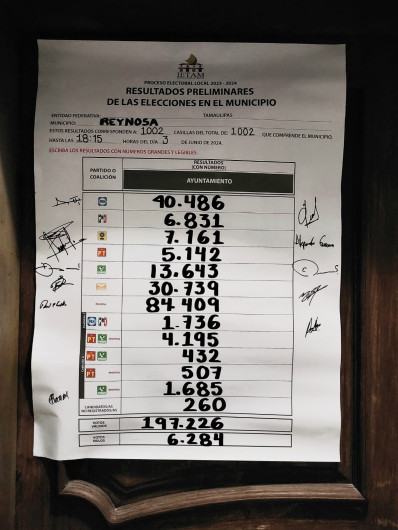 IETAM
PROCESO ELECTORAL LOCAL 2023 - 2024
RESULTADOS PRELIMINARES
DE LAS ELECCIONES EN EL MUNICIPIO
ENTIDAD FEDERATIVA: TAMAULIPAS
MUNICIPIO: REYNOSA
ESTOS RESULTADOS CORRESPONDEN A: 1002 CASILLAS DEL TOTAL DE 1002 QUE COMPRENDE EL MUNICIPIO.
HASTA LAS 18:15 HORAS DEL DÍA 3 DE JUNIO DE 2024.
ESCRIBA LOS RESULTADOS CON NÚMEROS GRANDES Y LEGIBLES.
PARTIDO O COALICIÓN
RESULTADOS (CON NÚMERO)
AYUNTAMIENTO
PAN 40.486
PRI 6.831
7.161
PT 5.142
VERDE 13.643
30.739
morena 84.409
PAN PRI 1.736
PT VERDE morena 4.195
PT VERDE 432
PT morena 507
VERDE morena 1.685
CANDIDATOS/AS NO REGISTRADOS/AS 260
VOTOS VÁLIDOS 197.226
VOTOS NULOS 6.284